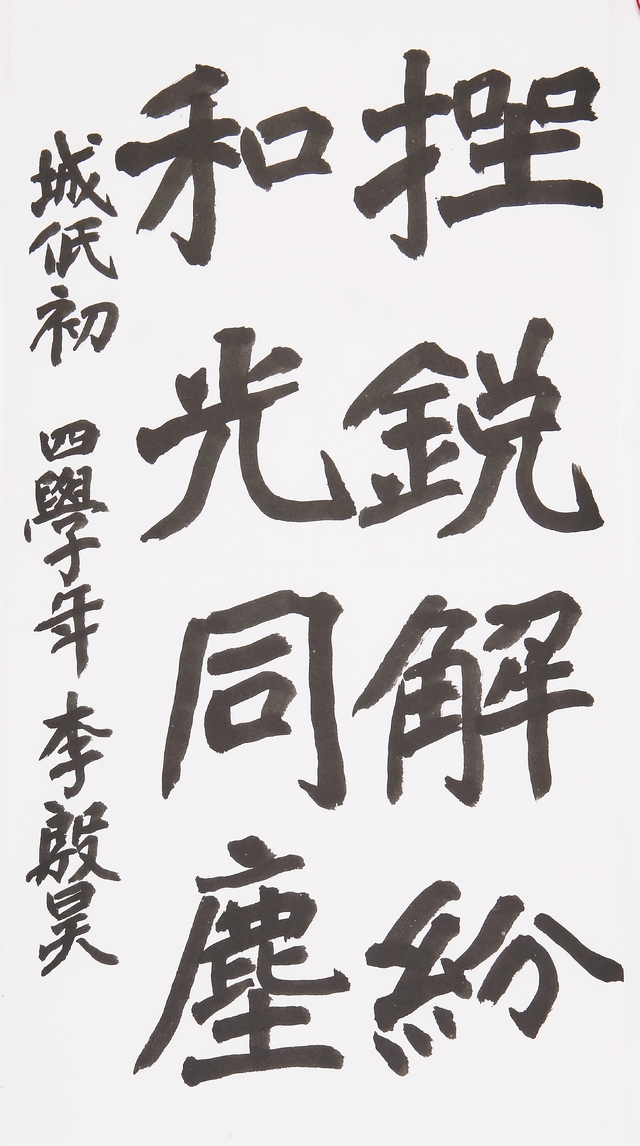 挫鋭解紛
和光同塵
城低初 四學年 李殷昊